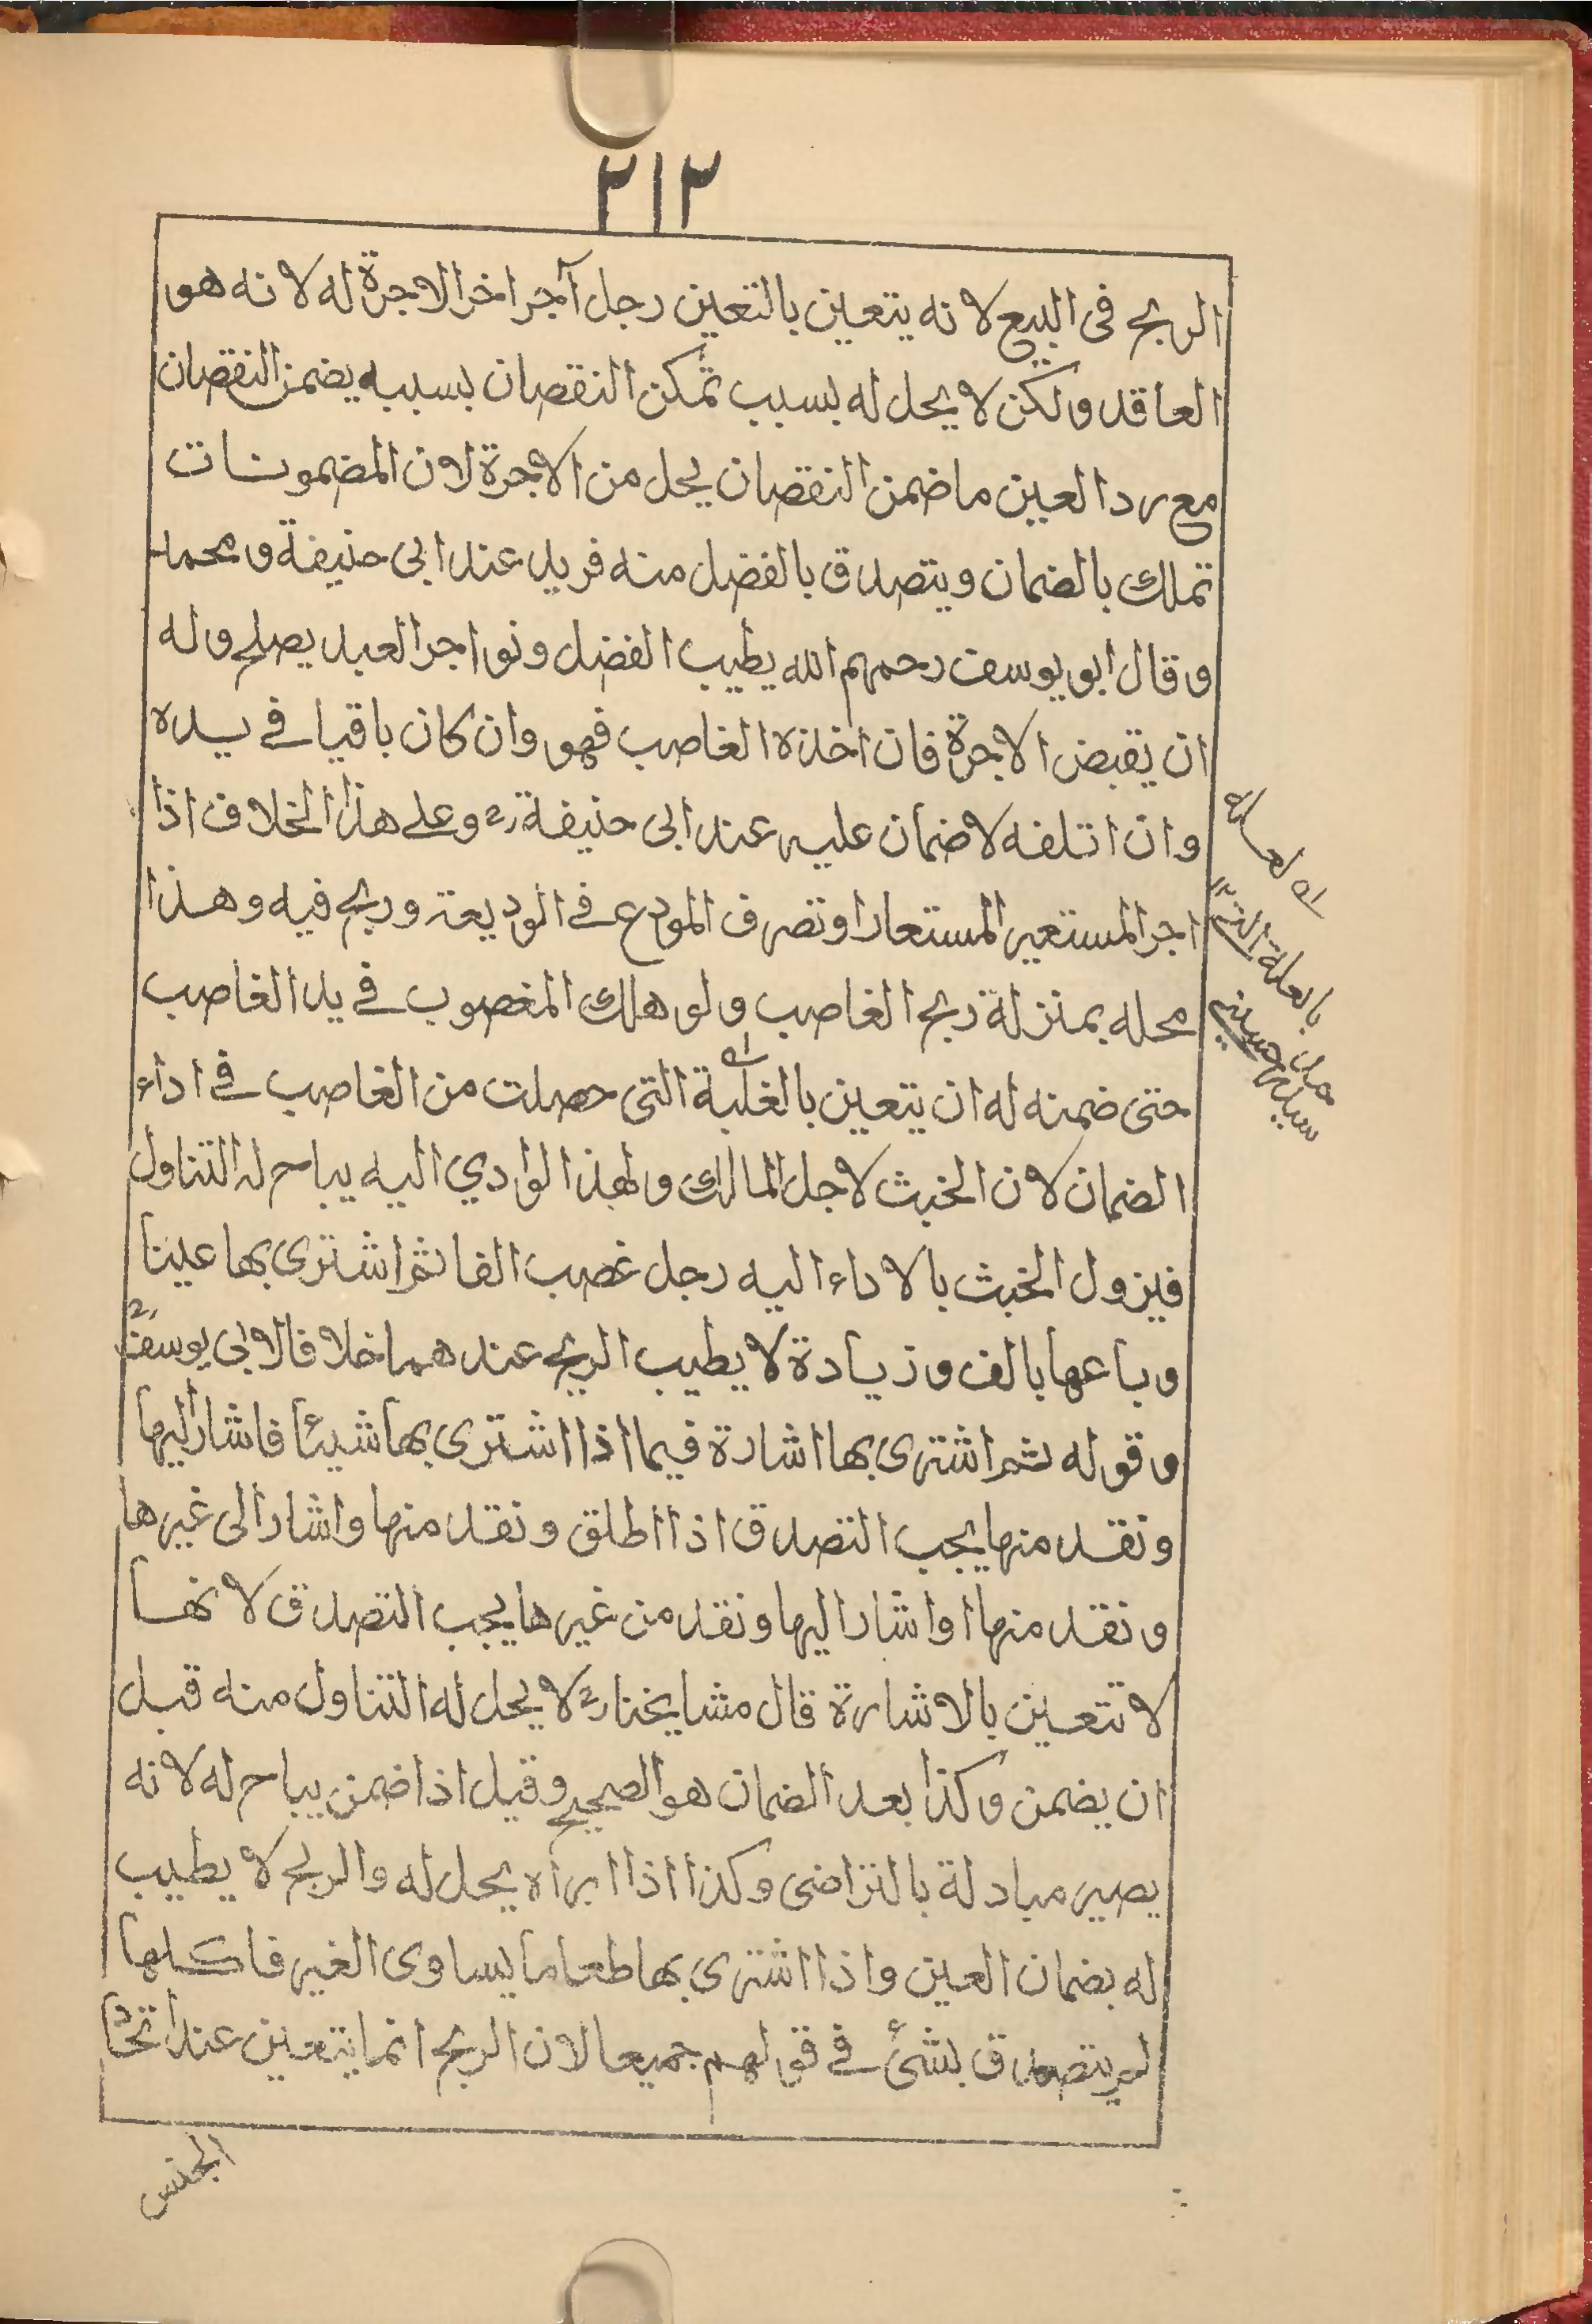 ٢١٢
الربح فى البيع لانه يتعين بالتعين رجل آجر اخر الاجرة له لانه هو
العاقد ولكن لا يحل له بسبب تمكن النقصان بسببه يضمن النقصان
مع رد العين ما ضمن النقصان يحل من الاجرة لان المضمونات
تملك بالضمان ويتصدق بالفضل منه فريد عند ابى حنيفة ومحمد
وقال ابو يوسف رحمهم الله يطيب الفضل ونو اجر العبد يصلح وله
ان يقبض الاجرة فان اخذه الغاصب فهو وان كان باقيا فے يده
وان اتلفه لا ضمان عليه عند ابى حنيفة رح وعلے هذا الخلاف اذا
اجر المستعير المستعار او تصرف المودع فے الوديعة وربح فيه وهذا
محله بمنزلة ربح الغاصب ولو هلك المغصوب فے يد الغاصب
حتى ضمنه له ان يتعين بالغلبة التى حصلت من الغاصب فے اداء
الضمان لان الخبث لاجل المالك ولهذا لو ادي اليه يباح له التناول
فيزول الخبث بالاداء اليه رجل غصب الفا ثم اشترى بها عينا
وباعها بالف وزيادة لا يطيب الربح عندهما خلافا لابى يوسف رح
وقوله ثم اشترى بها اشارة فيما اذا اشترى بها شيئا فاشار اليها
ونقد منها يجب التصدق اذا اطلق ونقد منها واشار الى غيرها
ونقد منها او اشار اليها ونقد من غيرها يجب التصدق لانها
لا تتعين بالاشارة قال مشايخنا رح لا يحل له التناول منه قبل
ان يضمن وكذا بعد الضمان هو الصحيح وقيل اذا ضمن يباح له لانه
يصير مبادلة بالتراضى وكذا اذا ابراه يحل له والربح لا يطيب
له بضمان العين واذا اشترى بها طعاما يساوى الغير فاكلها
لم يتصدق بشئ فے قولهم جميعا لان الربح انما يتعين عند اتحا
الجنس